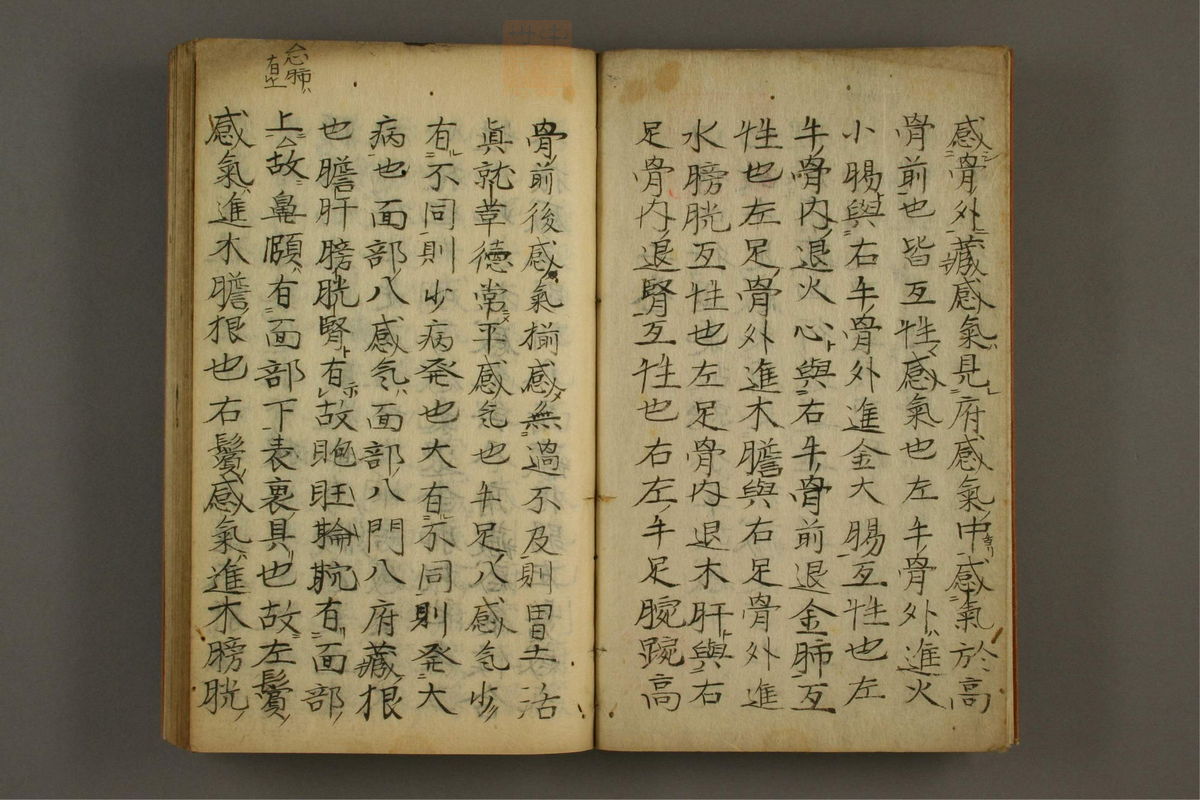 感骨外藏感氣見府感氣中感氣於高
骨前也皆互性感氣也左手骨外進火
小腸與右手骨外進金大腸互性也左
手骨内退火心與右手骨前退金肺互
性也左足骨外進木膽與右足骨外進
水膀胱互性也左足骨内退木肝與右
足骨内退腎互性也右左手足腕踠高
骨前後感氣揃感無過不及則胃土活
眞就葦德常平感気也手足八感気少
有不同則少病発也大有不同則発大
病也面部八感気面部八門八府藏根
也膽肝膀胱腎有故眇眶輪睆有面部
上故鼻頤有面部下表裏具也故左鬢
感氣進木膽根也右鬢感氣進木膀胱